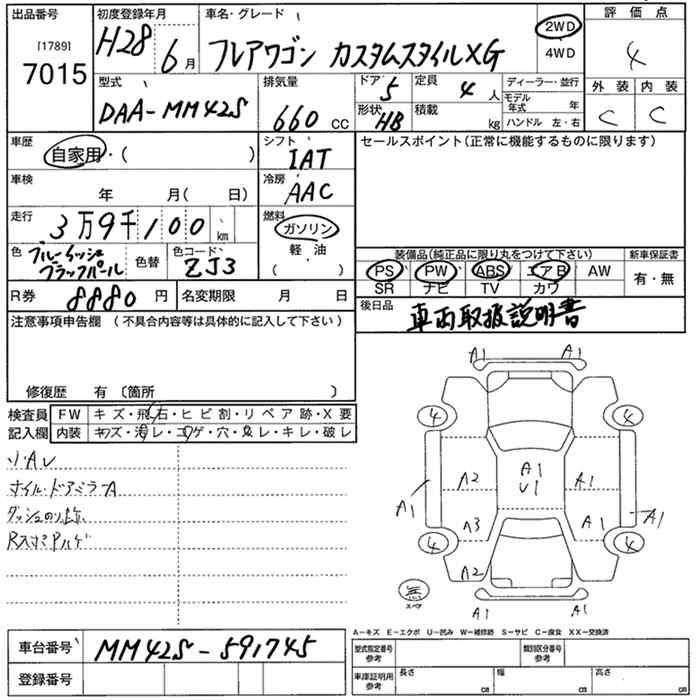 出品番号 初度登録年月 車名・グレード 評価点
[1789]
7015
H28 6月 フレアワゴン カスタムスタイルXG 2WD 4WD 4
型式 排気量 ドア 5 定員 4人 ディーラー・並行 外装 内装
DAA-MM42S 660 CC 形状 HB 積載 kg モデル年式 年 C C
ハンドル 左・右
車歴 シフト セールスポイント(正常に機能するものに限ります)
自家用・( ) IAT
車検 年 月( 日) 冷房 AAC
走行 3万9千100 km 燃料 ガソリン
軽・油
( )
色 ブルーイッシュブラックパール 色替 色コード ZJ3
装備品(純正品に限り丸をつけて下さい) 新車保証書
PS PW ABS エアB AW 有・無
SR ナビ TV カワ
R券 8880円 名変期限 月 日 後日品 車両取扱説明書
注意事項申告欄 (不具合内容等は具体的に記入して下さい)
修復歴 有 〔箇所 〕
検査員記入欄 FW キズ・飛石・ヒビ割・リペア跡・X要
内装 キズ・汚レ・コゲ・穴・スレ・キレ・破レ
小・Aレ
ホイル・ドアミラーA
ダッシュのり跡
A1 A1
4 4
A2 A1 U1 A1
A1 A1
A3 A1
4 4
A2
無 スペア
A1 A1
A-キズ E-エクボ U-凹み W-補修跡 S-サビ C-腐食 XX-交換済
車台番号 MM42S-591745
登録番号
型式指定番号 参考 類別区分番号 参考
車庫証明用 参考 長さ cm 幅 cm 高さ cm